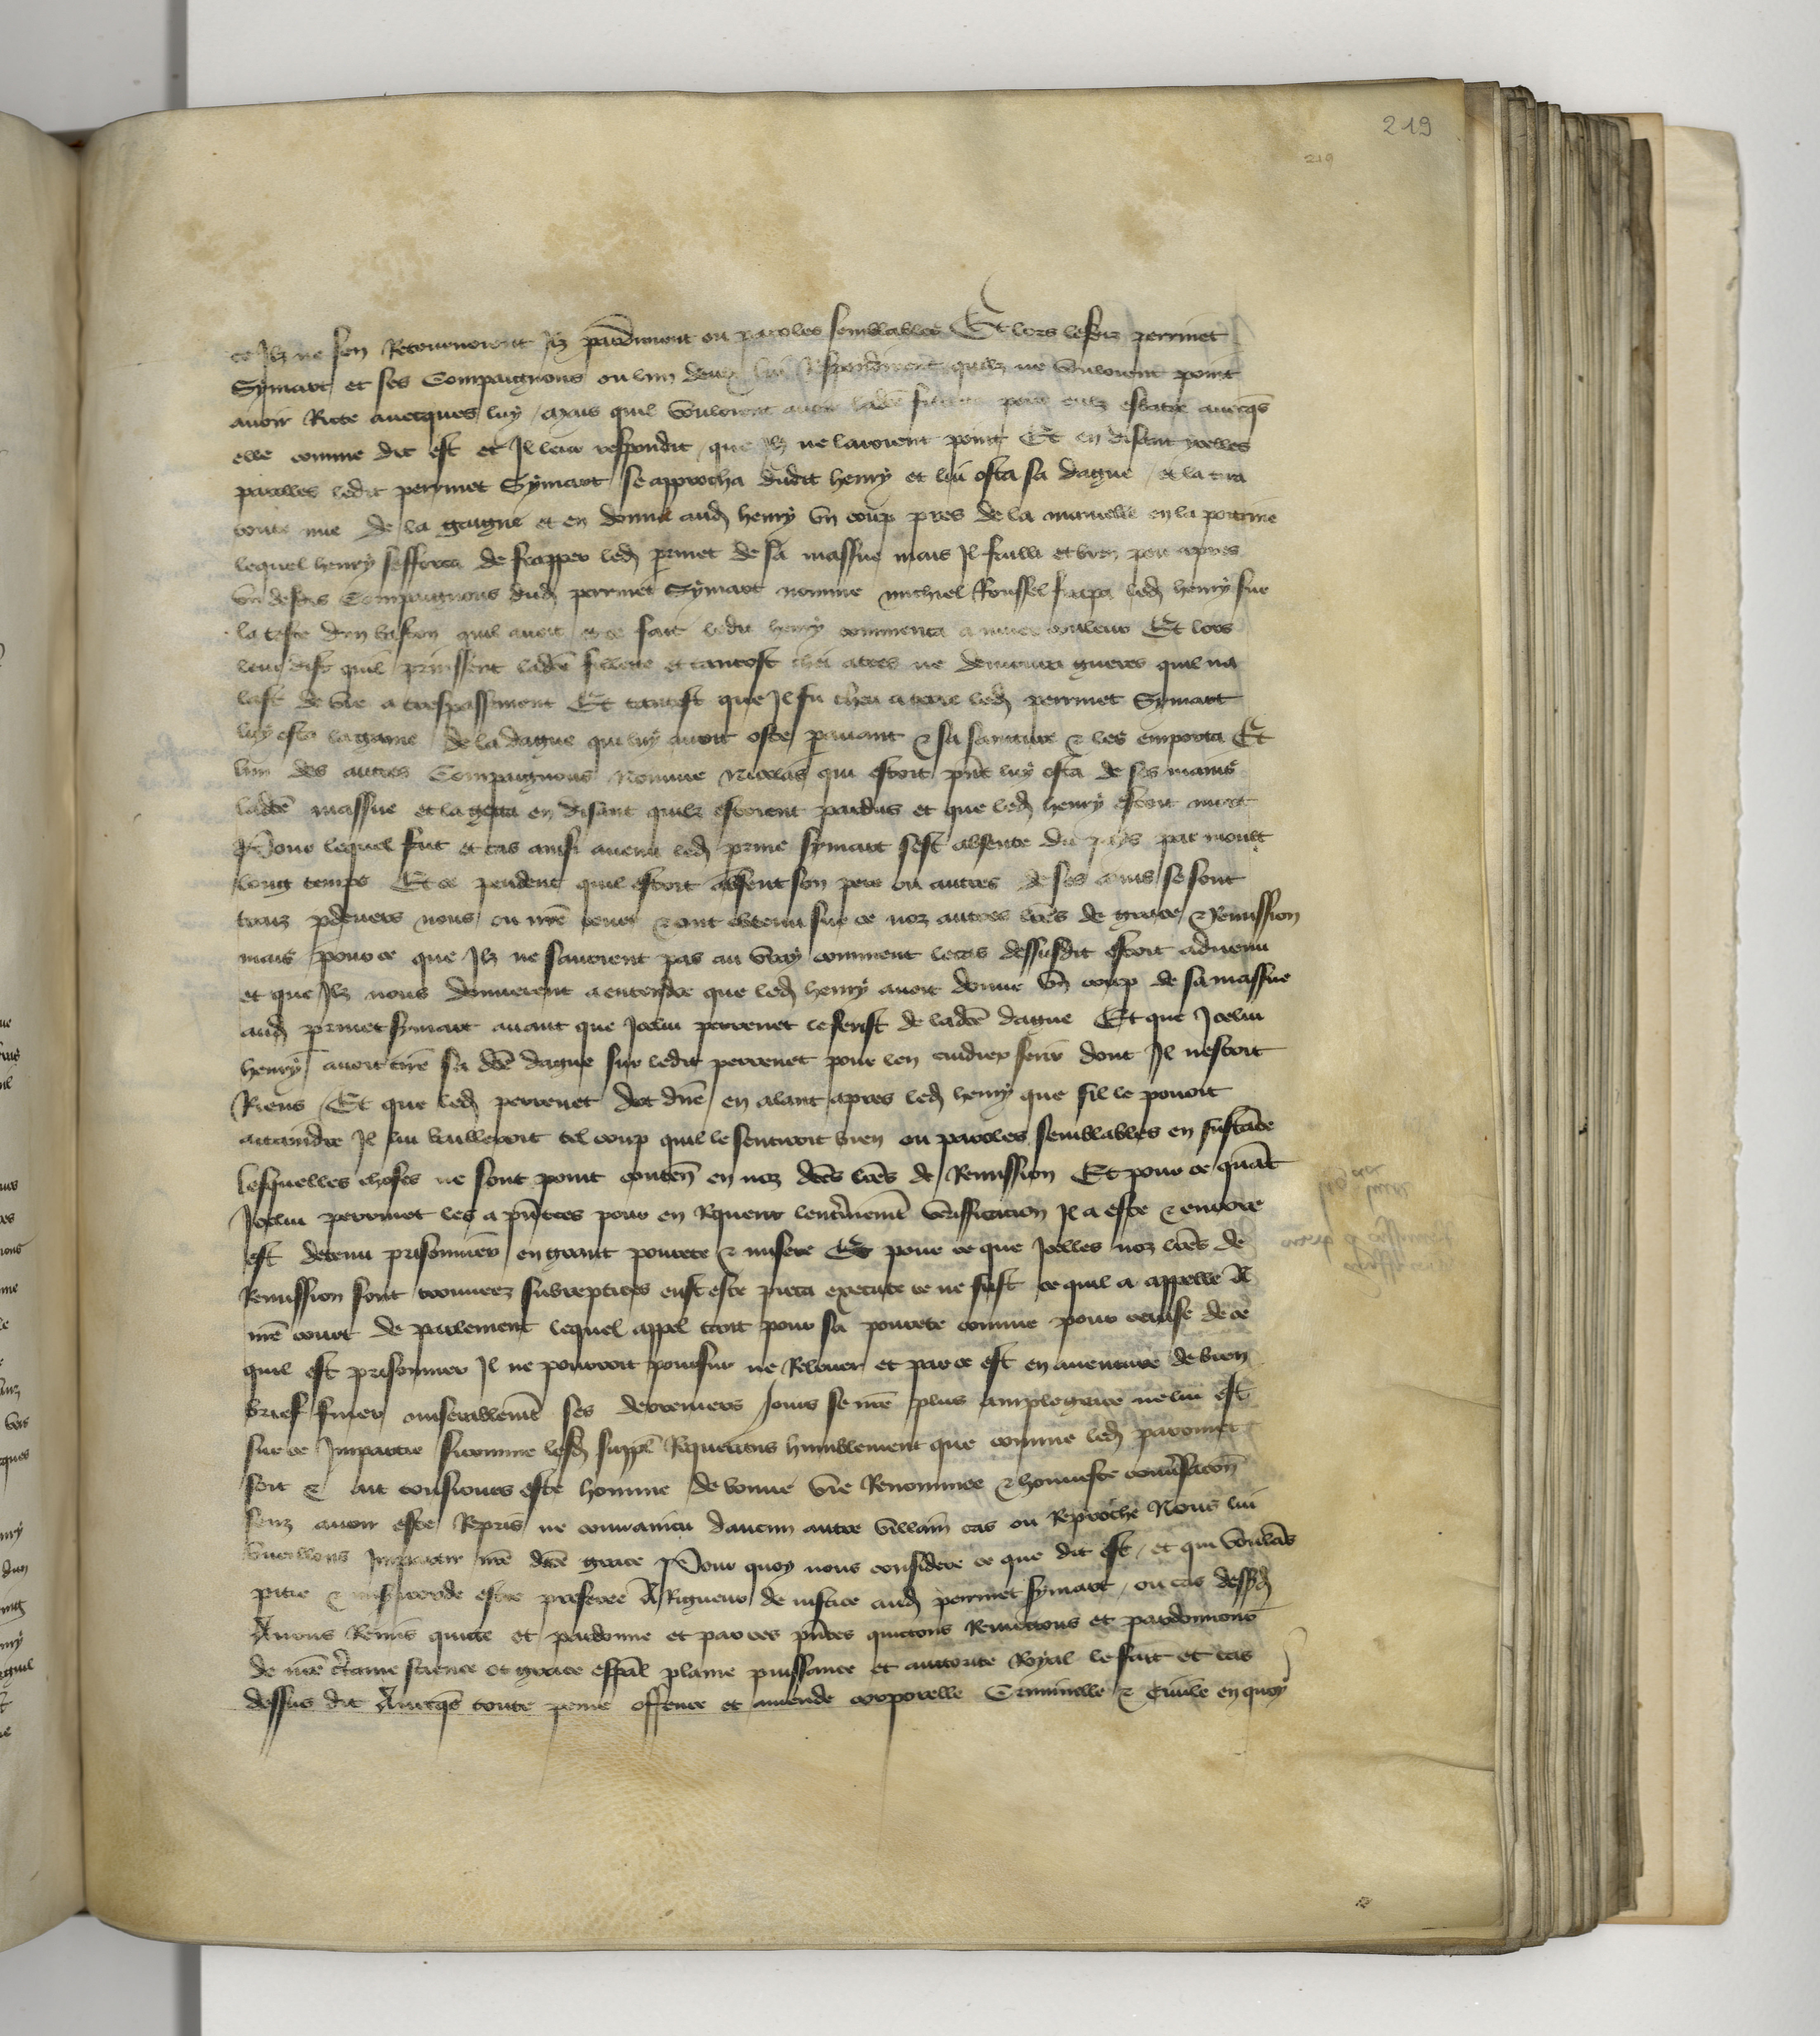 219
219
ce Ilz ne sen Retournoient Ilz pardiroient ou paroles semblables Et lors lesdiz perrinet
Symart et ses Compaignons ou lun deulx lui Respondirent quilz ne vouloient point
avoir Riote avecques luy mais quil vouloient avoir ladce fillette pour eulx esbatre avecqs
elle comme dit est et Il leur respondit que Ilz ne lauroient point Et en disant ycelles
paroles ledit perrinet Symart se approcha dudit henry et lui osta sa dague et la tira
toute nue de la gaigne et en donna aud henry un coup pres de la mamelle en la poitrine
lequel henry sefforca de frapper led prinet de sa massue mais Il failli et bien pou apres
un desdis Compaignons dud perrinet Symart nomme michiel Roussel frapa led henry sur
la teste dun baston quil avoit et ce fait ledit henry commenca a muer couleur Et lors
leur dist quil prinssent ladce fillette et tantost chei a terre ne demoura gueres quil na
last de vie a trespassement Et tantost que Il fu cheu a terre led perrinet Symart
luy osta la gaine de la dague qui luy avoit oste pavant & sa sainture & les emporta Et
lun des autres Compaignons Nomme Nicolas qui estoit pnt luy osta de ses mains
ladce massue et la getta en disant quilz estoient perdus et que led henry estoit mort
Pour lequel fait et cas ainsi avenu led prine symart sest absente du pays par moult
long temps Et ce pendent quil estoit absent son pere ou autres de ses amis se sont
traiz pdevers nous ou nre court & ont obtenu sur ce noz autres lres de grace & Remission
mais pour ce que Ilz ne savoient pas au vray comment le cas dessusdit estoit advenu
et que Ilz nous donnerent a entendre que led henry avoit donne un coup de sa massue
aud prinet symart avant que Icelui perrenet le ferist de ladce dague Et que Icelui
henry avoit tire sa dce dague sur ledit perrenet pour len cuidier ferir dont Il nestoit
Riens Et que led perrenet dot dire en alant apres led henry que sil le povoit
attaindre Il lui bailleroit tel coup quil le sentiroit bien ou paroles semblables en substace
lesquelles choses ne sont point conten en noz dces lres de Remission Et pour ce quat
Icelui perrinet les a pntees pour en Requerir lenterinemt Veriffication Il a este & encore
est detenu prisonnier en grant povrete & misere Et pour ce que Icelles noz lres de
Remission sont trouvees subreptices eust este pieca execute ce ne fust ce quil a appelle A
nre court de parlement lequel appel tant pour sa povrete comme pour cause de ce
quil est prisonnier Il ne pourroit poursuir ne Relever et par ce est en aventure de bien
brief finer miserablemt ses derreniers Jours se nre plus ample grace ne lui est
sur ce Impartie si comme lesd suppl Requerans humblement que comme led parrinet
soit & ait tousjours este homme de bonne vie Renommee & honneste conversacon
senz avoir este Repris ne convaincu daucun autre villain cas ou Reproche Nous lui
vueillons Impartir nre dce grace Pour quoy nous considere ce que dit est et qui voulans
pitie & misericorde estre preferee A Rigueur de justice aud perrinet symart ou cas dessusd
Avons Remis quicte et pardonne et par ces pntes quictons Remettons et pardonnons
de nre certaine science et grace espal plaine puissance et autorite Royal le fait et cas
dessus dit Avecqs toute peine offence et amende corporelle Criminelle & Civile en quoy